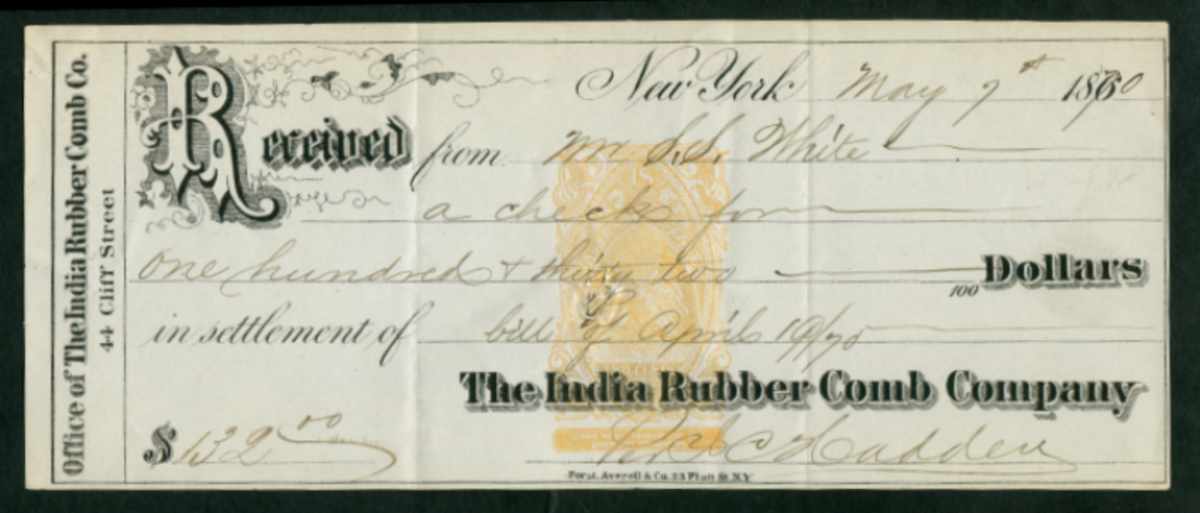 Office of The India Rubber Comb Co.
44 Cliff Street
New York May 9th 1870
Received from Mr S.S. White
a check for
one hundred + thirty two /100 Dollars
in settlement of bill of April 19/70
The India Rubber Comb Company
$ 132 00
Hadden
Forst, Averell & Co. 23 Platt St. N.Y